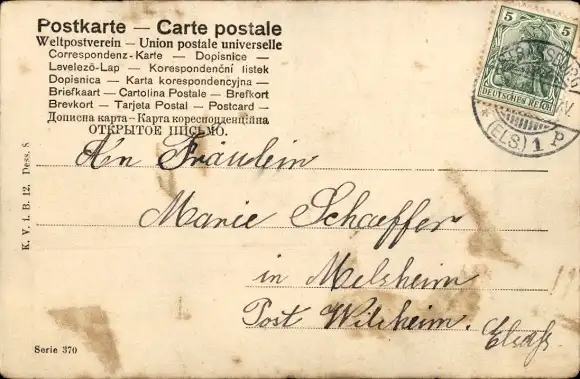 Postkarte — Carte postale
Weltpostverein — Union postale universelle
Correspondenz-Karte — Dopisnice —
Levelező-Lap — Korespondenční lístek
Dopisnica — Karta korespondencyjna —
Briefkaart — Cartolina Postale — Brefkort
Brevkort — Tarjeta Postal — Postcard —
Дописна карта — Карта кореспонденційна
ОТКРЫТОЕ ПИСЬМО.
5 5
DEUTSCHES REICH
(ELS.) 1 P
An Fräulein
Marie Schaeffer
in Melsheim
Post Wilsheim. Elsaß
K. V. i. B. 12. Dess. 8
Serie 370